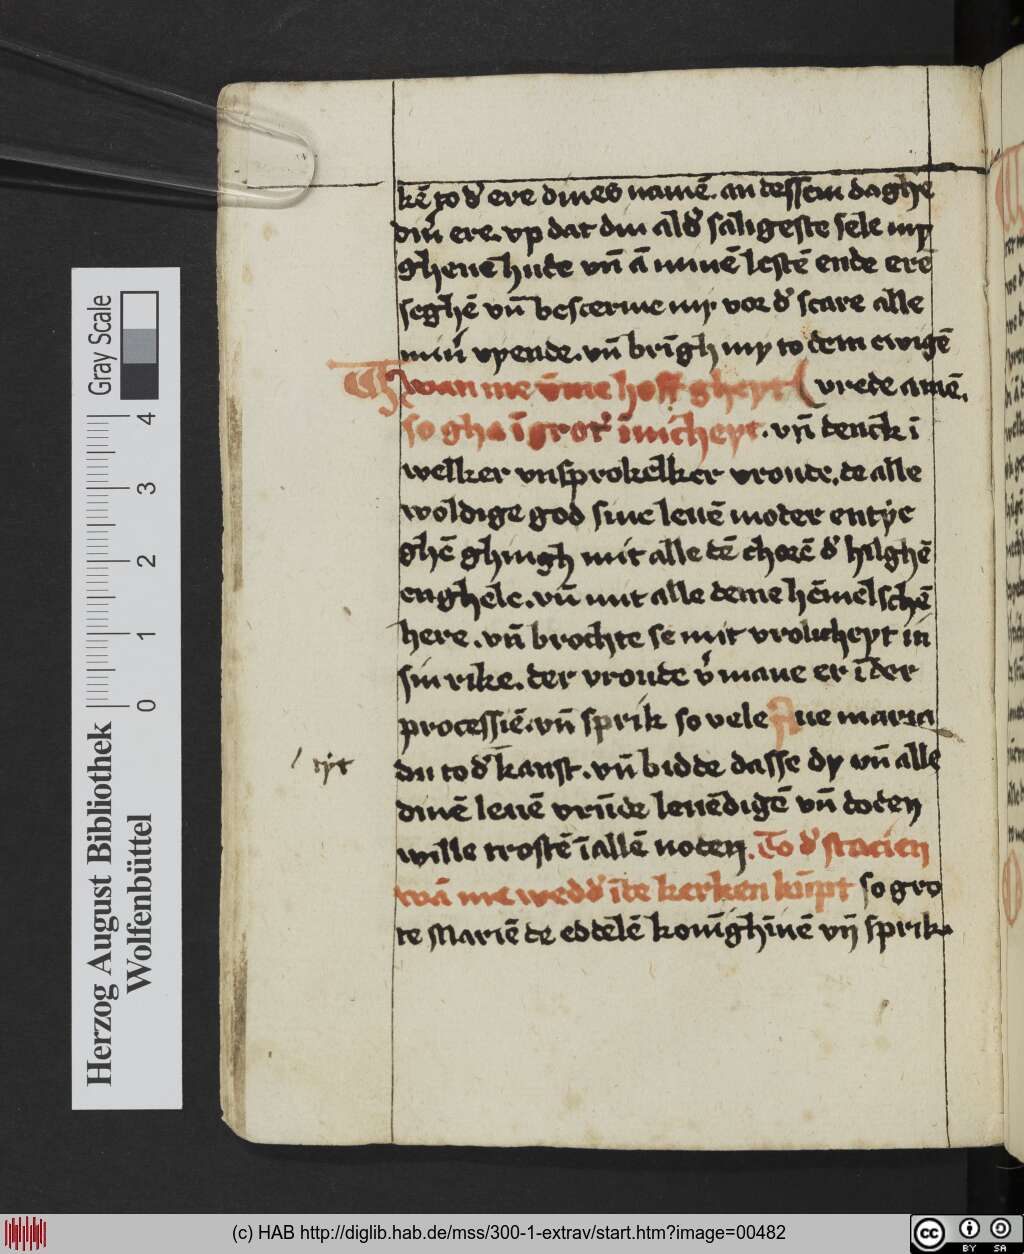 kē to dʼ ere dines namē. an dessem daghe
dinʼ ere. vp dat din aldʼ saligeste sele my
gheue hude vn̄ ā minē lestē ende erē
seghē vn̄ bescerme my vor dʼ scare alle
minʼ vyende. vn̄ brīgh my to dem ewigē
wan me v̄me hoff gheyt ( vrede amē.
so gha ī grotʼ īnicheyt. vn̄ denck ī
welker vnsprokelker vroude, de alle
woldige god sine leuē moter entÿe
ghē ghingh mit alle dē chorē dʼ hilghē
enghele. vn̄ mit alle deme hēmelschē
here. vn̄ brochte se mit vrolicheyt in
sin rike. der vroude vʼmane er ī der
processiē. vn̄ sprik so vele Aue maria
/ tÿt
du to dʼ kanst. vn̄ bidde dasse dy vn̄ alle
dinē leuē vrūde leuēdigē vn̄ doden
wille trostē ī allē noten. To dʼ stacien
wā me weddʼ ī de kerken kūpt so gro
te Mariē de eddelē konīghīnē vn̄ sprik.
Herzog August Bibliothek
Wolfenbüttel
Gray Scale
0 1 2 3 4
(c) HAB http://diglib.hab.de/mss/300-1-extrav/start.htm?image=00482
cc BY SA